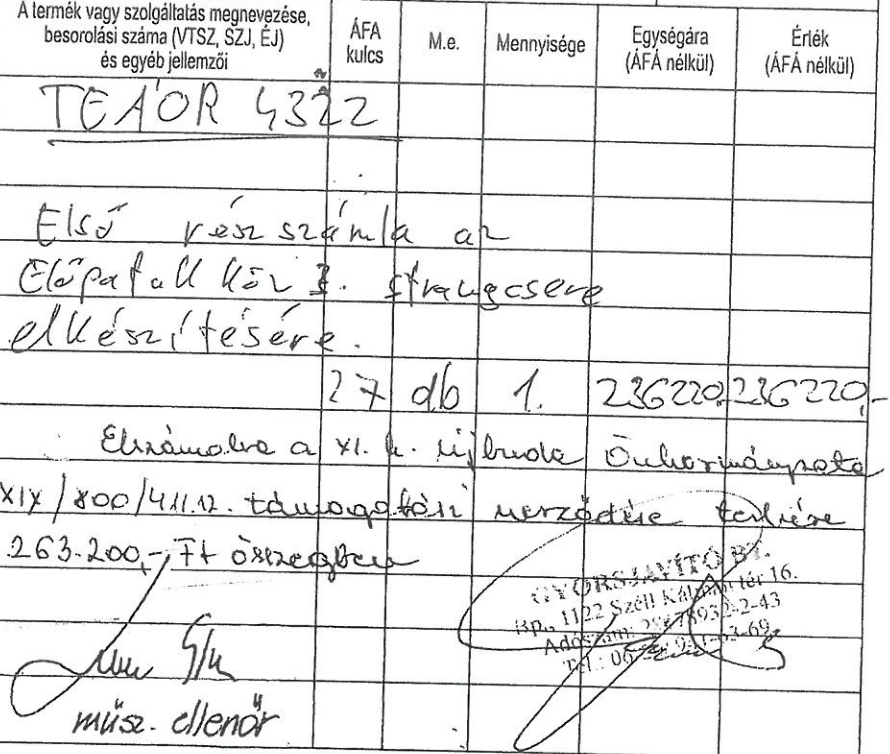 A termék vagy szolgáltatás megnevezése, besorolási száma (VTSZ, SZJ, ÉJ) és egyéb jellemzői
ÁFA kulcs
M.e.
Mennyisége
Egységára (ÁFÁ nélkül)
Érték (ÁFÁ nélkül)
TEÁOR 4322
Első részszámla az
Előpatak köz strangcsere
elkészítésére.
27 db 1. 236220,- 236220,-
Elszámolva a XI. k. Újbuda Önkormányzata
XIX/800/411.12. támogatási szerződése terhére
263.200,- Ft összegben
GYORSJAVÍTÓ BT.
Bp., 1122 Széll Kálmán tér 16.
Adószám: 2-43
Tel.: 06
műsz. ellenőr